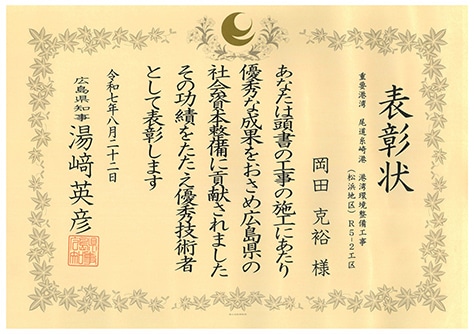 表彰状
重要港湾 尾道糸崎港 港湾環境整備工事
(松浜地区) R5-2工区
岡田 克裕 様
あなたは頭書の工事の施工にあたり
優秀な成果をおさめ広島県の
社会資本整備に貢献されました
その功績をたたえ優秀技術者
として表彰します
令和七年八月二十二日
広島県知事
湯﨑 英彦